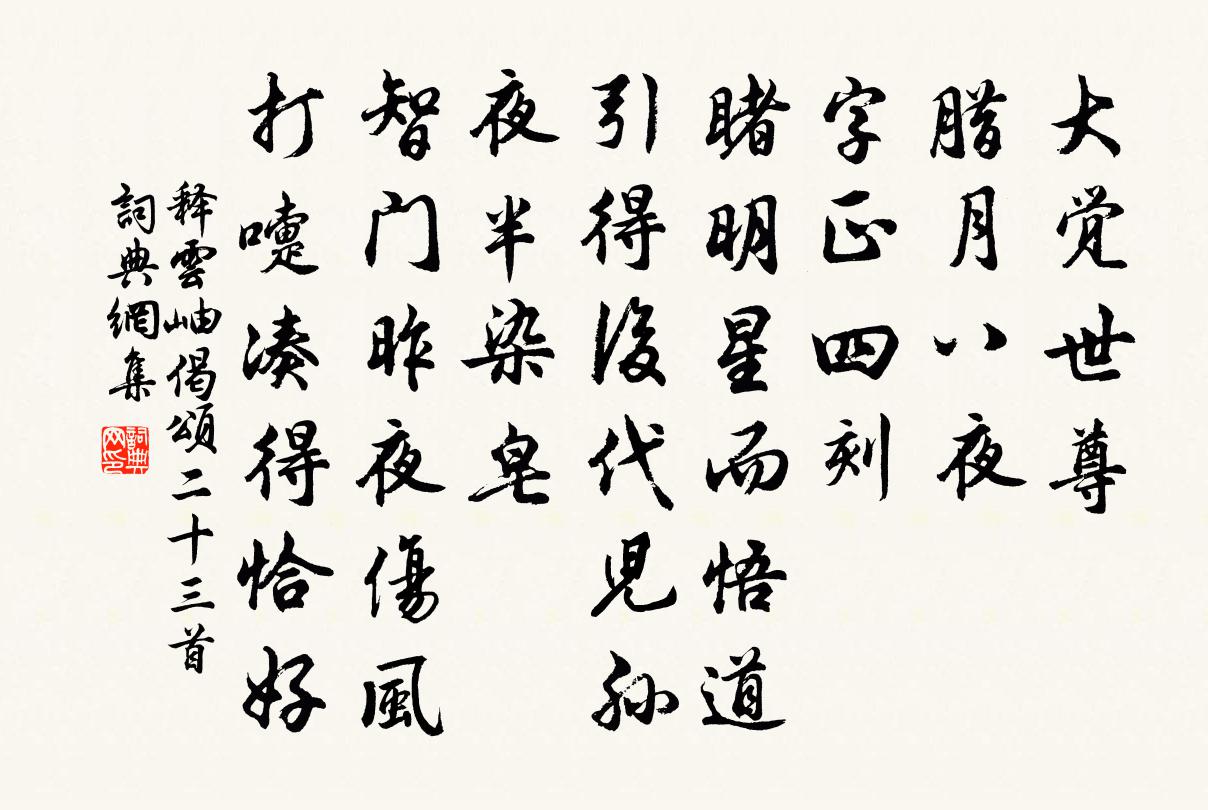 大觉世尊
腊月八夜
字正四刻
睹明星而悟道
引得後代児孙
夜半染皂
智门昨夜傷風
打嚏凑得恰好
释雲岫偈頌二十三首
詞典網集
詞典网印